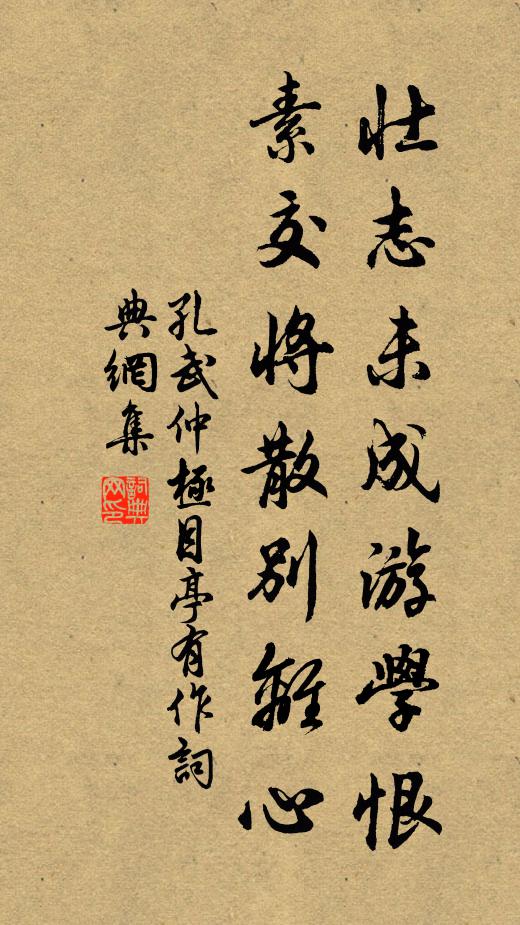 壯志未成游學恨
素交將散別離心
孔武仲極目亭有作詞
典網集
詞典網印